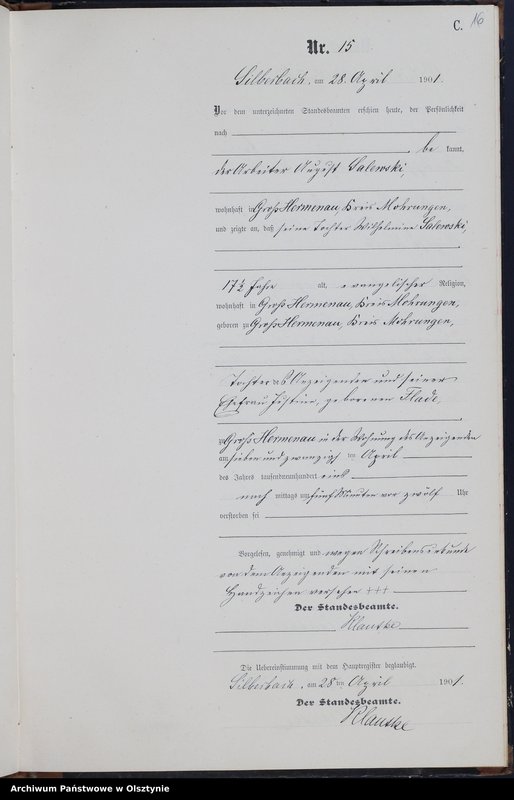 C.
16
Nr. 15
Silberbach, am 28. April 1901.
Vor dem unterzeichneten Standesbeamten erschien heute, der Persönlichkeit
nach
be kannt,
der Arbeiter August Salewski,
wohnhaft in Groß Hermenau, Kreis Mohrungen,
und zeigte an, daß seine Tochter Wilhelmine Salewski,
17½ Jahre alt, evangelischer Religion,
wohnhaft in Groß Hermenau, Kreis Mohrungen,
geboren zu Groß Hermenau, Kreis Mohrungen,
Tochter des Anzeigenden und seiner
Ehefrau Justine, geborenen
zu Groß Hermenau in der Wohnung des Anzeigenden
am sieben und zwanzigsten April
des Jahres tausendneunhundert eins
nach mittags um fünf Minuten vor zwölf Uhr
verstorben sei
Vorgelesen, genehmigt und wegen Schreibensunkunde
von dem Anzeigenden mit seinen
Handzeichen versehen +++
Der Standesbeamte.
Klautke
Die Uebereinstimmung mit dem Hauptregister beglaubigt.
Silberbach, am 28ten April 1901.
Der Standesbeamte.
Klautke
Archiwum Państwowe w Olsztynie